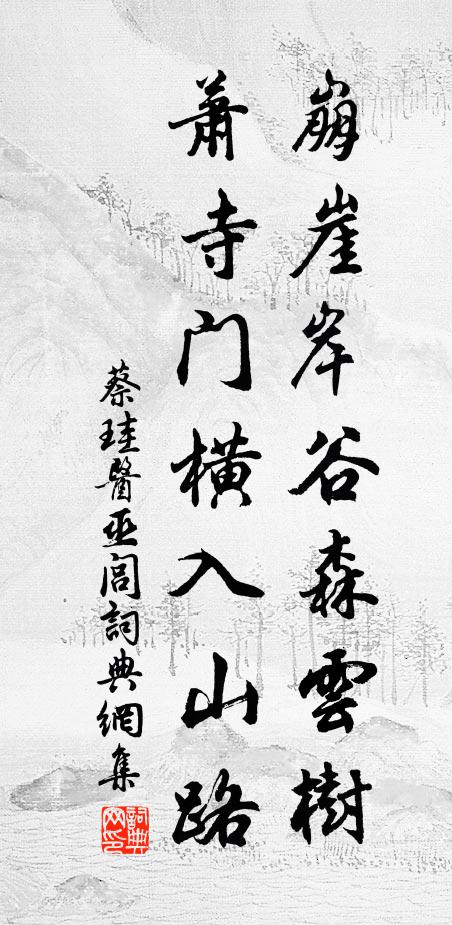 崩崖岸谷森雲樹
蕭寺門橫入山路
蔡珪醫巫閭詞典網集
詞典網印